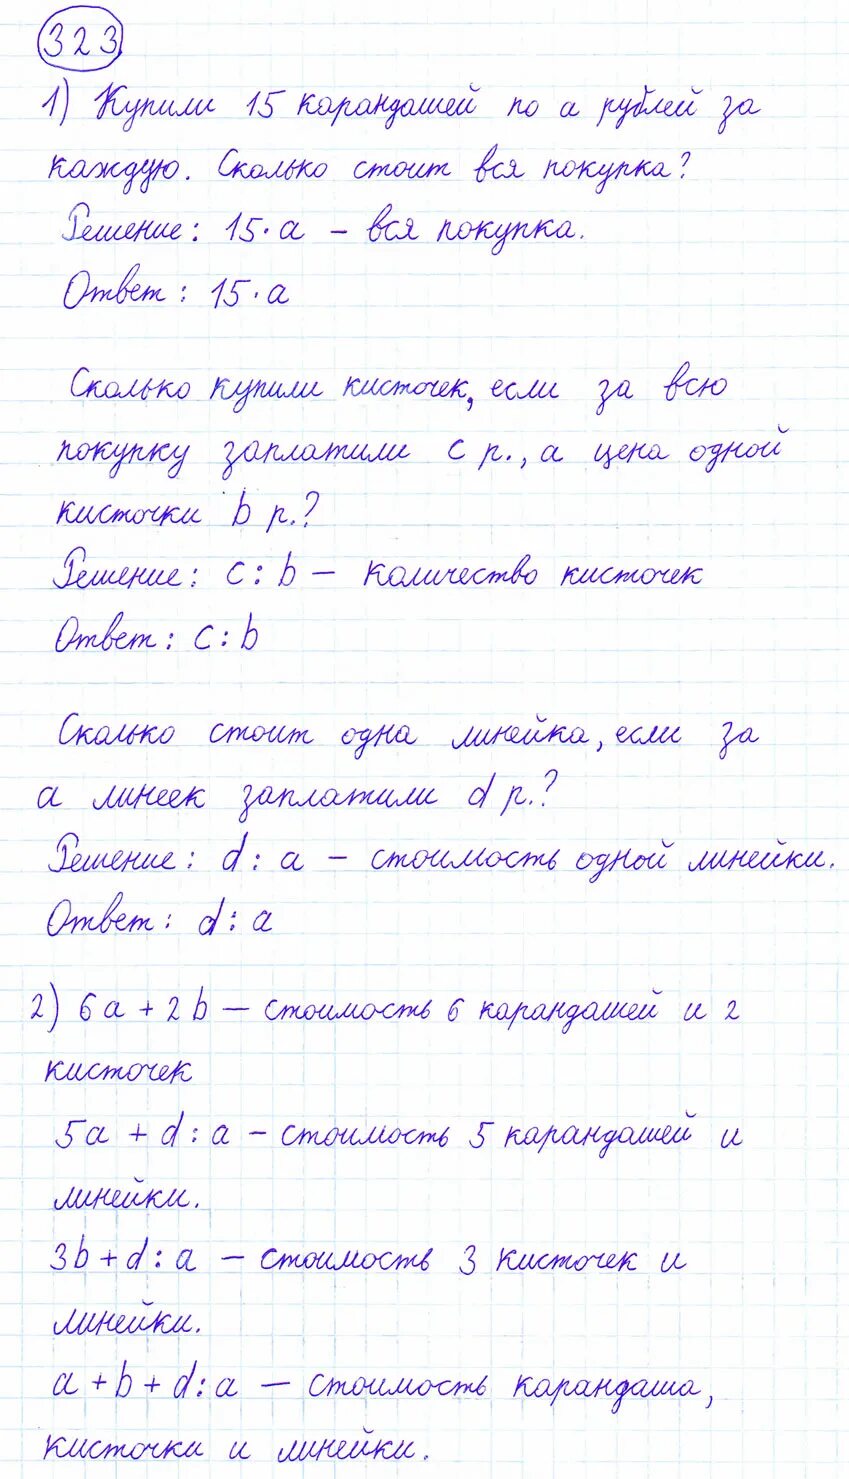 323
1) Купили 15 карандашей по a рублей за
каждую. Сколько стоит вся покупка?
Решение: 15·a – вся покупка.
Ответ: 15·a
Сколько купили кисточек, если за всю
покупку заплатили c р., а цена одной
кисточки b р.?
Решение: c : b – количество кисточек
Ответ: c : b
Сколько стоит одна линейка, если за
a линеек заплатили d р.?
Решение: d : a – стоимость одной линейки.
Ответ: d : a
2) 6a + 2b – стоимость 6 карандашей и 2
кисточек
5a + d : a – стоимость 5 карандашей и
линейки.
3b + d : a – стоимость 3 кисточек и
линейки.
a + b + d : a – стоимость карандаша,
кисточки и линейки.